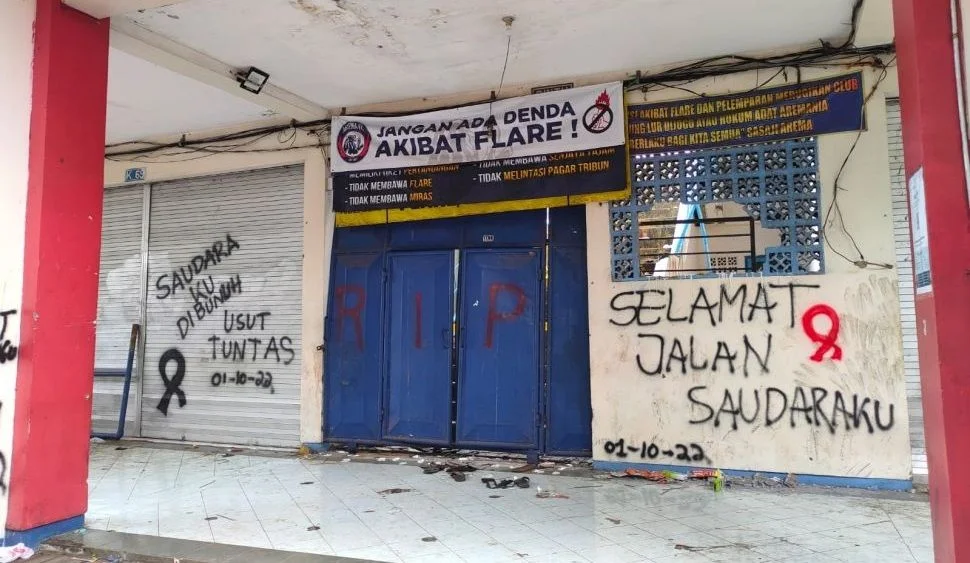 K 69
SAUDARA
KU
DI BUNUH
USUT
TUNTAS
01-10-22
JANGAN ADA DENDA
AKIBAT FLARE !
- TIDAK MEMBAWA FLARE
- TIDAK MEMBAWA MIRAS
- TIDAK MEMBAWA SENJATA TAJAM
- TIDAK MELINTASI PAGAR TRIBUN
AKIBAT FLARE DAN PELEMPARAN MERUGIKAN CLUB
ATAU HUKUM ADAT AREMANIA
BERLAKU BAGI KITA SEMUA"
R I P
SELAMAT
JALAN
SAUDARAKU
01-10-22